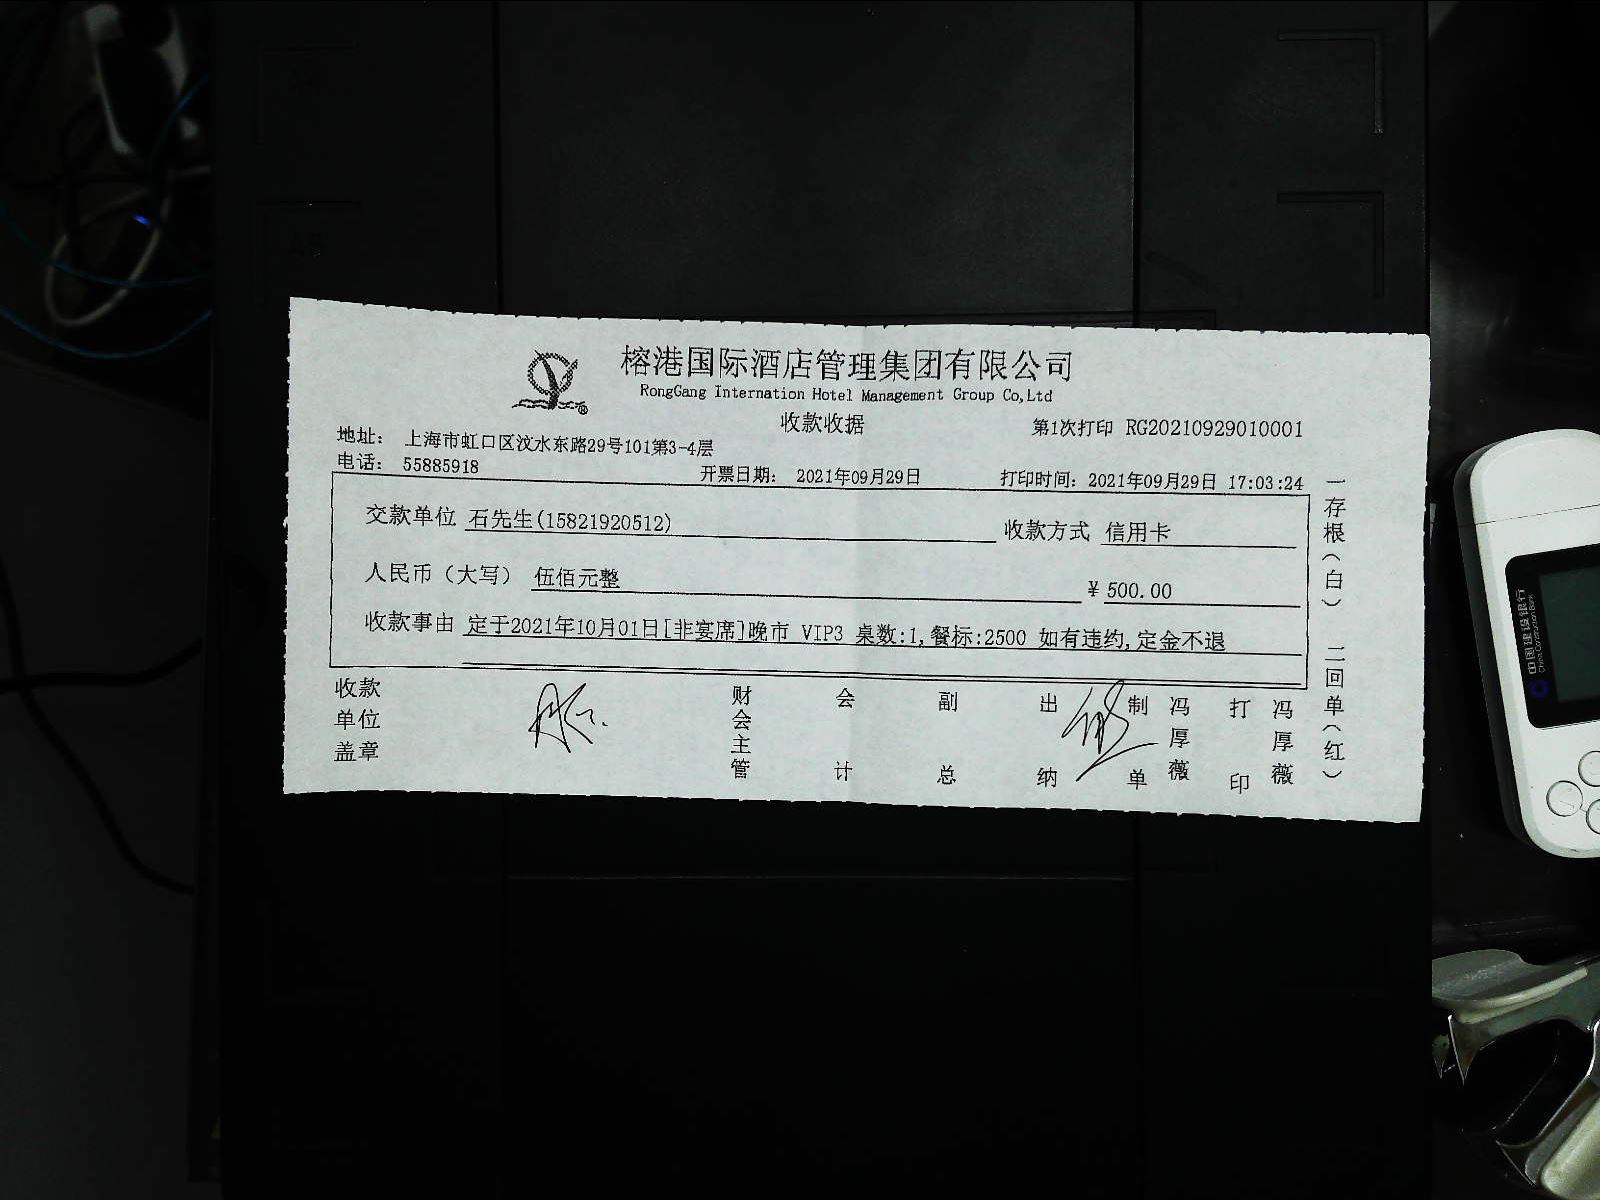 榕港国际酒店管理集团有限公司
RongGang Internation Hotel Management Group Co,Ltd
收款收据
第1次打印 RG20210929010001
地址: 上海市虹口区汶水东路29号101第3-4层
电话: 55885918
开票日期: 2021年09月29日
打印时间: 2021年09月29日 17:03:24
交款单位 石先生(15821920512)
收款方式 信用卡
人民币(大写) 伍佰元整
¥ 500.00
收款事由 定于2021年10月01日[非宴席]晚市 VIP3 桌数:1,餐标:2500 如有违约,定金不退
收款单位盖章
财会主管
会计
副总
出纳
制单 冯厚薇
打印 冯厚薇
一存根(白) 二回单(红)
中国建设银行
China Construction Bank